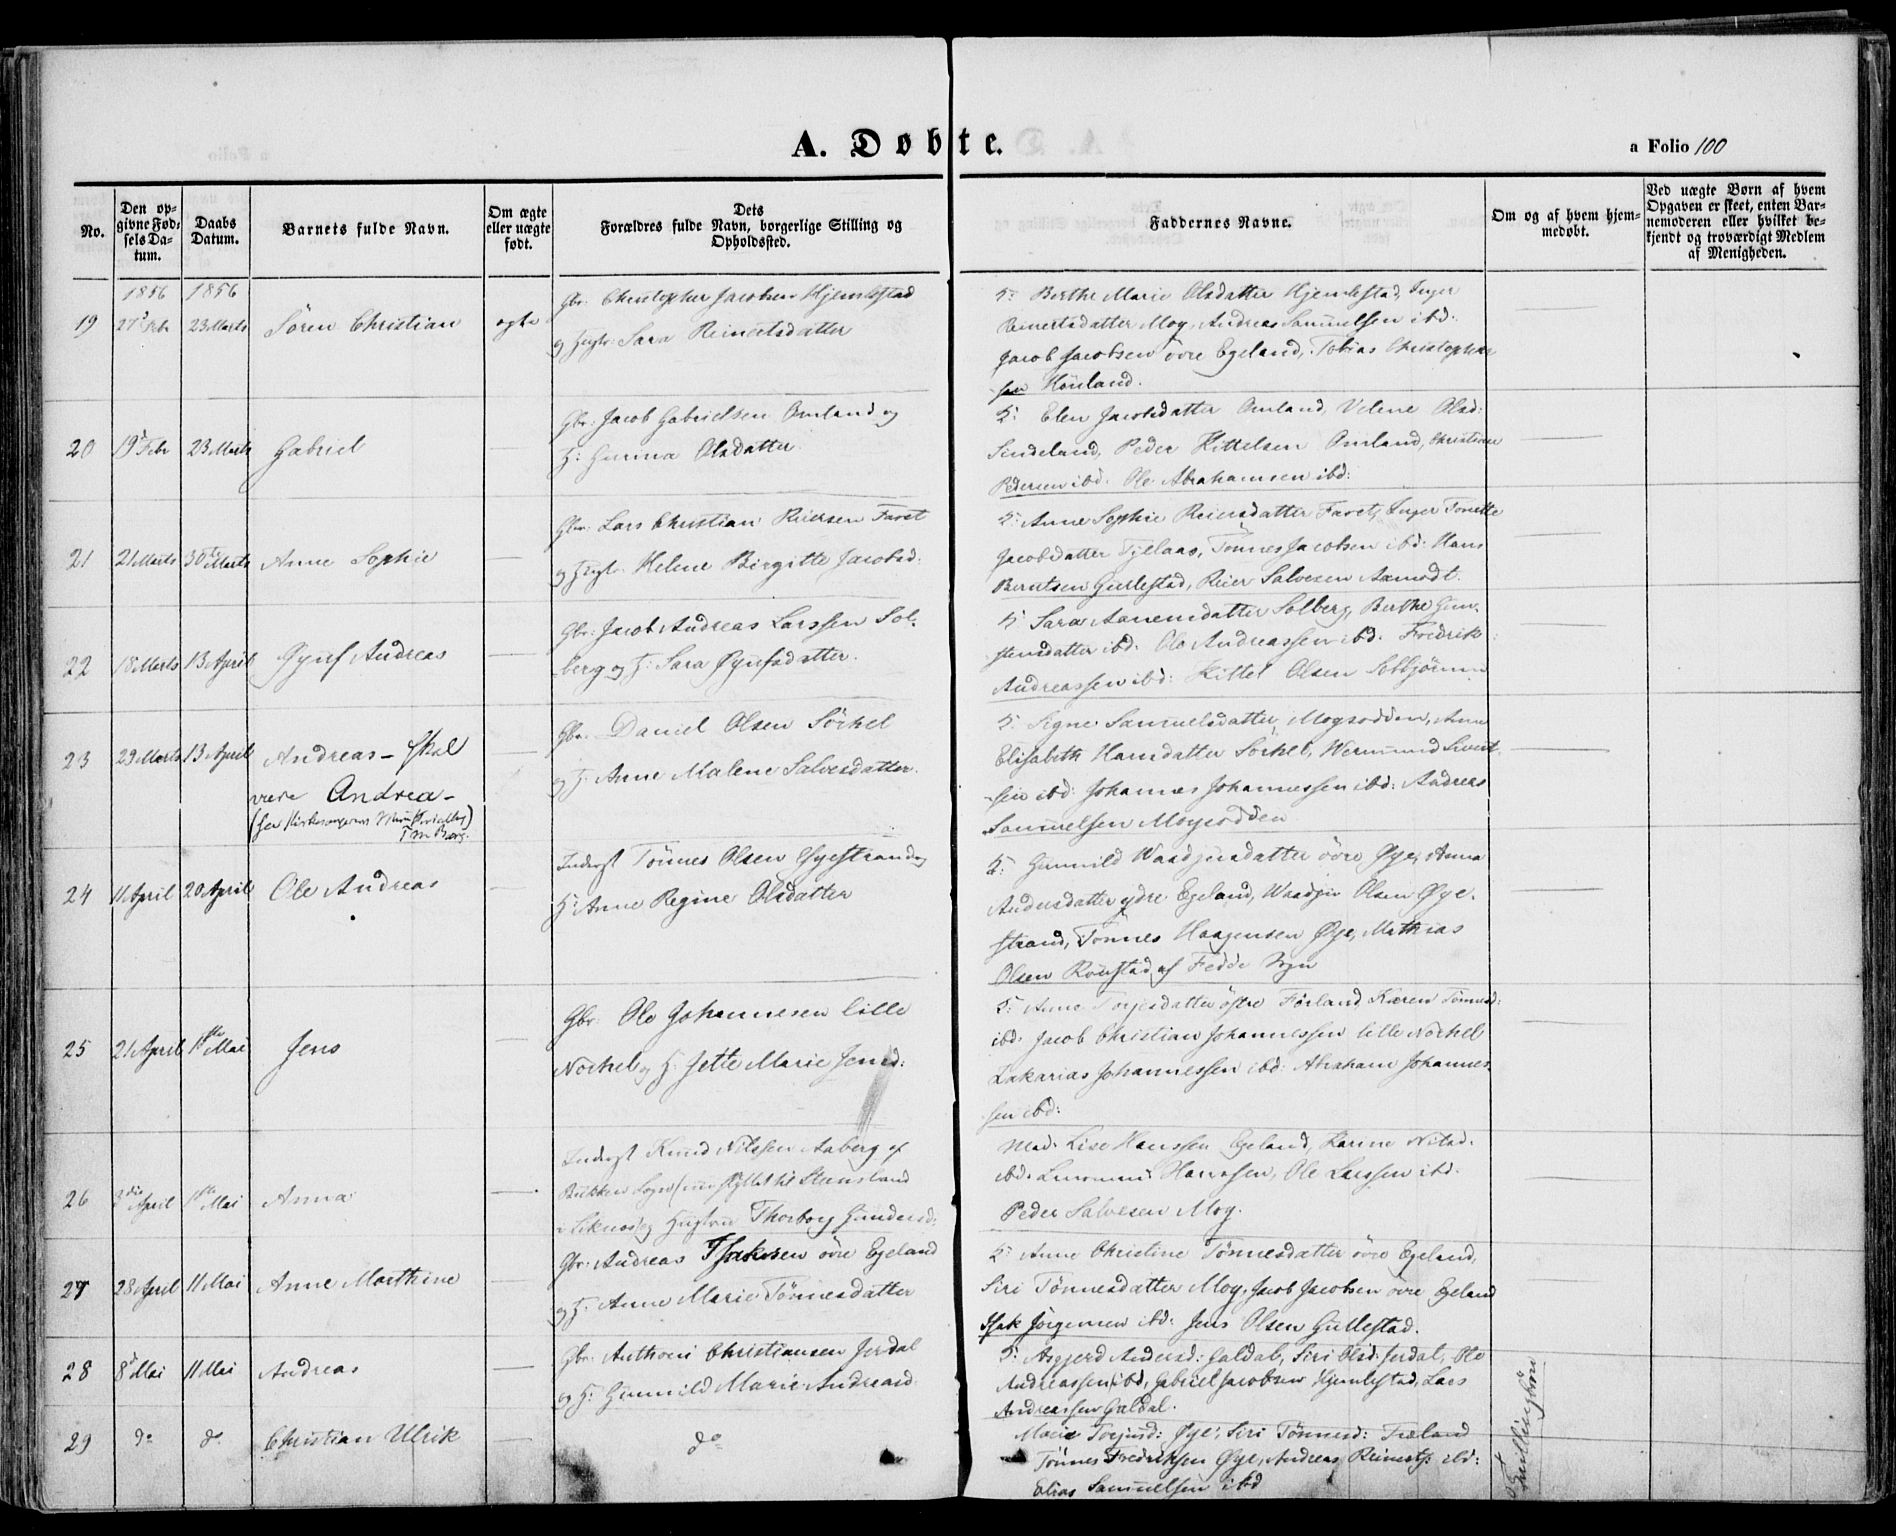 A. Døbte.
a Folio 100
No.
Den opgivne Fødsels Datum.
Daabs Datum.
Barnets fulde Navn.
Om ægte eller uægte født.
Dets Forældres fulde Navn, borgerlige Stilling og Opholdssted.
Faddernes Navne.
Om og af hvem hjemmedøbt.
Ved uægte Børn af hvem Opgaven er skeet, enten Barnemoderen eller hvilket bekjendt og troværdigt Medlem af Menigheden.
1856 1856
19 27d Febr 23 Marts Søren Christian ægte
Gbr: Christopher Jacobsen Hjemlestad
og Hustr: Sara Reinertsdatter
F: Berthe Marie Olsdatter Hjemlestad, Inger
Reinertsdatter Moy, Andreas Samuelsen ibd:
Jacob Jacobsen øvre Egeland, Tobias Christopher
sen
20 19d Febr 23 Marts Gabriel
Gbr: Jacob Gabrielsen Omland og
H: Gunna Olsdatter
F: Elen Jacobsdatter Omland, Velene Olsd:
Sindeland, Peder Kittelsen Omland, Christian
Pedersen ibd: Ole Abrahamsen ibd:
21 21 Marts 30te Marts Anne Sophie
Gbr: Lars Christian Reiersen Faret
og Hustr: Helene Birgitte Jacobsd:
F: Anne Sophie Reiersdatter Faret, Inger Tonette
Jacobsdatter Tjelaas, Tønnes Jacobsen ibd: Hans
Berntsen Gullestad, Reier Salvesen Aamodt.
22 18 Marts 13 April Øynf Andreas
Gbr: Jacob Andreas Larssen Sol-
berg og H: Sara Øynfsdatter.
F: Sara Aanensdatter Solberg, Berthe Gun-
stensdatter ibd: Ole Andreassen ibd: Fredrik
Andreassen ibd: Kittel Olsen
23 29 Marts 13 April Andreas – skal
være Andrea –
(see Kirkesangerens Ministerialbog)
Gbr: Daniel Olsen Sørhel
og H: Anne Malene Salvesdatter.
F: Signe Samuelsdatter, Moysodden, Anne
Elisabeth Hansdatter Sørhel, Wermund Sivert-
sen ibd: Johannes Johannessen ibd: Andreas
Samuelsen Moysodden
24 11 April 20 April Ole Andreas
Inderst Tønnes Olsen Øyestrand og
H: Anne Regine Olsdatter
F: Gunnild Waadjusdatter øvre Øye, Anna
Andersdatter ydre Egeland, Waadju Olsen Øye-
strand, Tønnes Haagensen Øye, Mathias
Olsen Rørstad af Fedde Sogn
25 21 April 1ste Mai Jens
Gbr: Ole Johannesen lille
Nørhel og H: Jette Marie Jensd:
F: Anne Torjesdatter østre Førland Karen Tønnesd:
ibd: Jacob Christian Johannessen lille Nørhel
Zakarias Johannessen ibd: Abraham Johannes-
sen ibd:
26 3die April 1ste Mai Anna
Inderst Knud Nilssen Aaberg af
Bakke Sogn (nu flyttet til Stensland
i Liknes) og Hustru Thorborg Gundersd:
Mad: Lise Hanssen Egeland, Karine
ibd: Hanssen, Ole Larssen ibd:
Peder Salvesen Moy.
27 28 April 11 Mai Anne Marthine
Gbr: Andreas Isaksen øvre Egeland
og H: Anne Marie Tønnesdatter
F: Anne Christine Tønnesdatter øvre Egeland,
Siri Tønnesdatter Moy, Jacob Jacobsen øvre Egeland
Isak Jørgensen ibd: Jens Olsen Gullestad.
28 8d Mai 11 Mai Andreas
Gbr: Anthoni Christiansen Jerdal
og H: Gunnild Marie Andreasd:
F: Asgjerd Andersd: Galdal, Siri Olsd: Jerdal, Ole
Andreassen ibd, Gabriel Jacobsen Hjemlestad, Lars
Andreassen Galdal.
29 do do Christian Ulrik
do
Marie Torjusd: Øye, Siri Tønnesd:
Tønnes Fredriksen Øye, Andreas Reinerts: ibd:
Elias Samuelsen ibd
Tvillingbørn